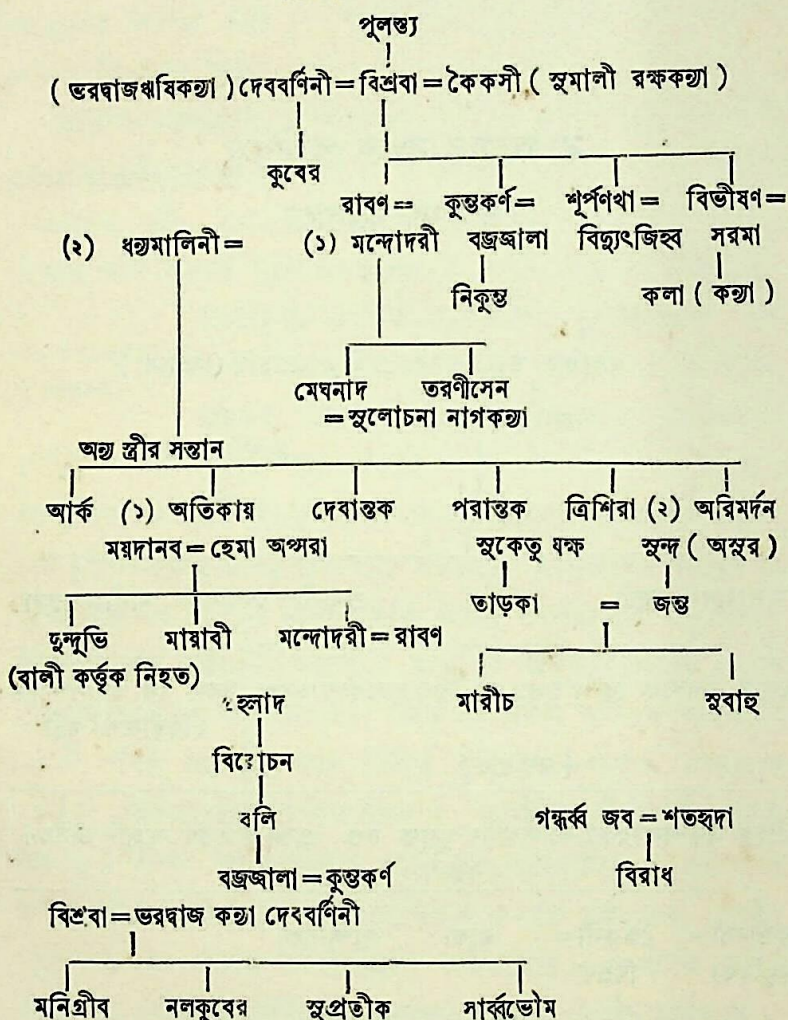 পুলস্ত্য
( ভরদ্বাজঋষিকন্যা ) দেববর্ণিনী = বিশ্রবা = কৈকসী ( সুমালী রক্ষকন্যা )
কুবের
রাবণ = কুম্ভকর্ণ = শূর্পণখা = বিভীষণ =
(২) ধন্যমালিনী = (১) মন্দোদরী বজ্রজ্বালা বিদ্যুৎজিহ্ব সরমা
নিকুম্ভ কলা ( কন্যা )
মেঘনাদ তরণীসেন
= সুলোচনা নাগকন্যা
অন্য স্ত্রীর সন্তান
আর্ক (১) অতিকায় দেবান্তক পরান্তক ত্রিশিরা (২) অরিমর্দন
ময়দানব = হেমা অপ্সরা সুকেতু যক্ষ সুন্দ ( অসুর )
তাড়কা = জম্ভ
দুন্দুভি মায়াবী মন্দোদরী = রাবণ
(বালী কর্ত্তৃক নিহত) মারীচ সুবাহু
হ্লাদ
বিরোচন
বলি গন্ধর্ব্ব জব = শতহ্রদা
বজ্রজ্বালা = কুম্ভকর্ণ বিরাধ
বিশ্রবা = ভরদ্বাজ কন্যা দেববর্ণিনী
মনিগ্রীব নলকুবের সুপ্রতীক সার্ব্বভৌম